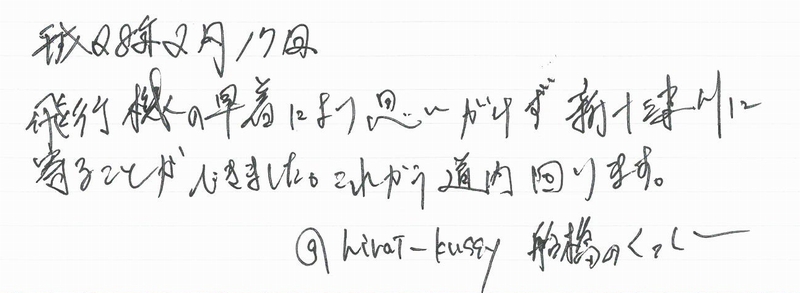 平成28年2月17日
飛行機の早着により思いがけず新十津川に
寄ることができました。これから道内回ります。
@hirat-kussy 船橋のくっしー